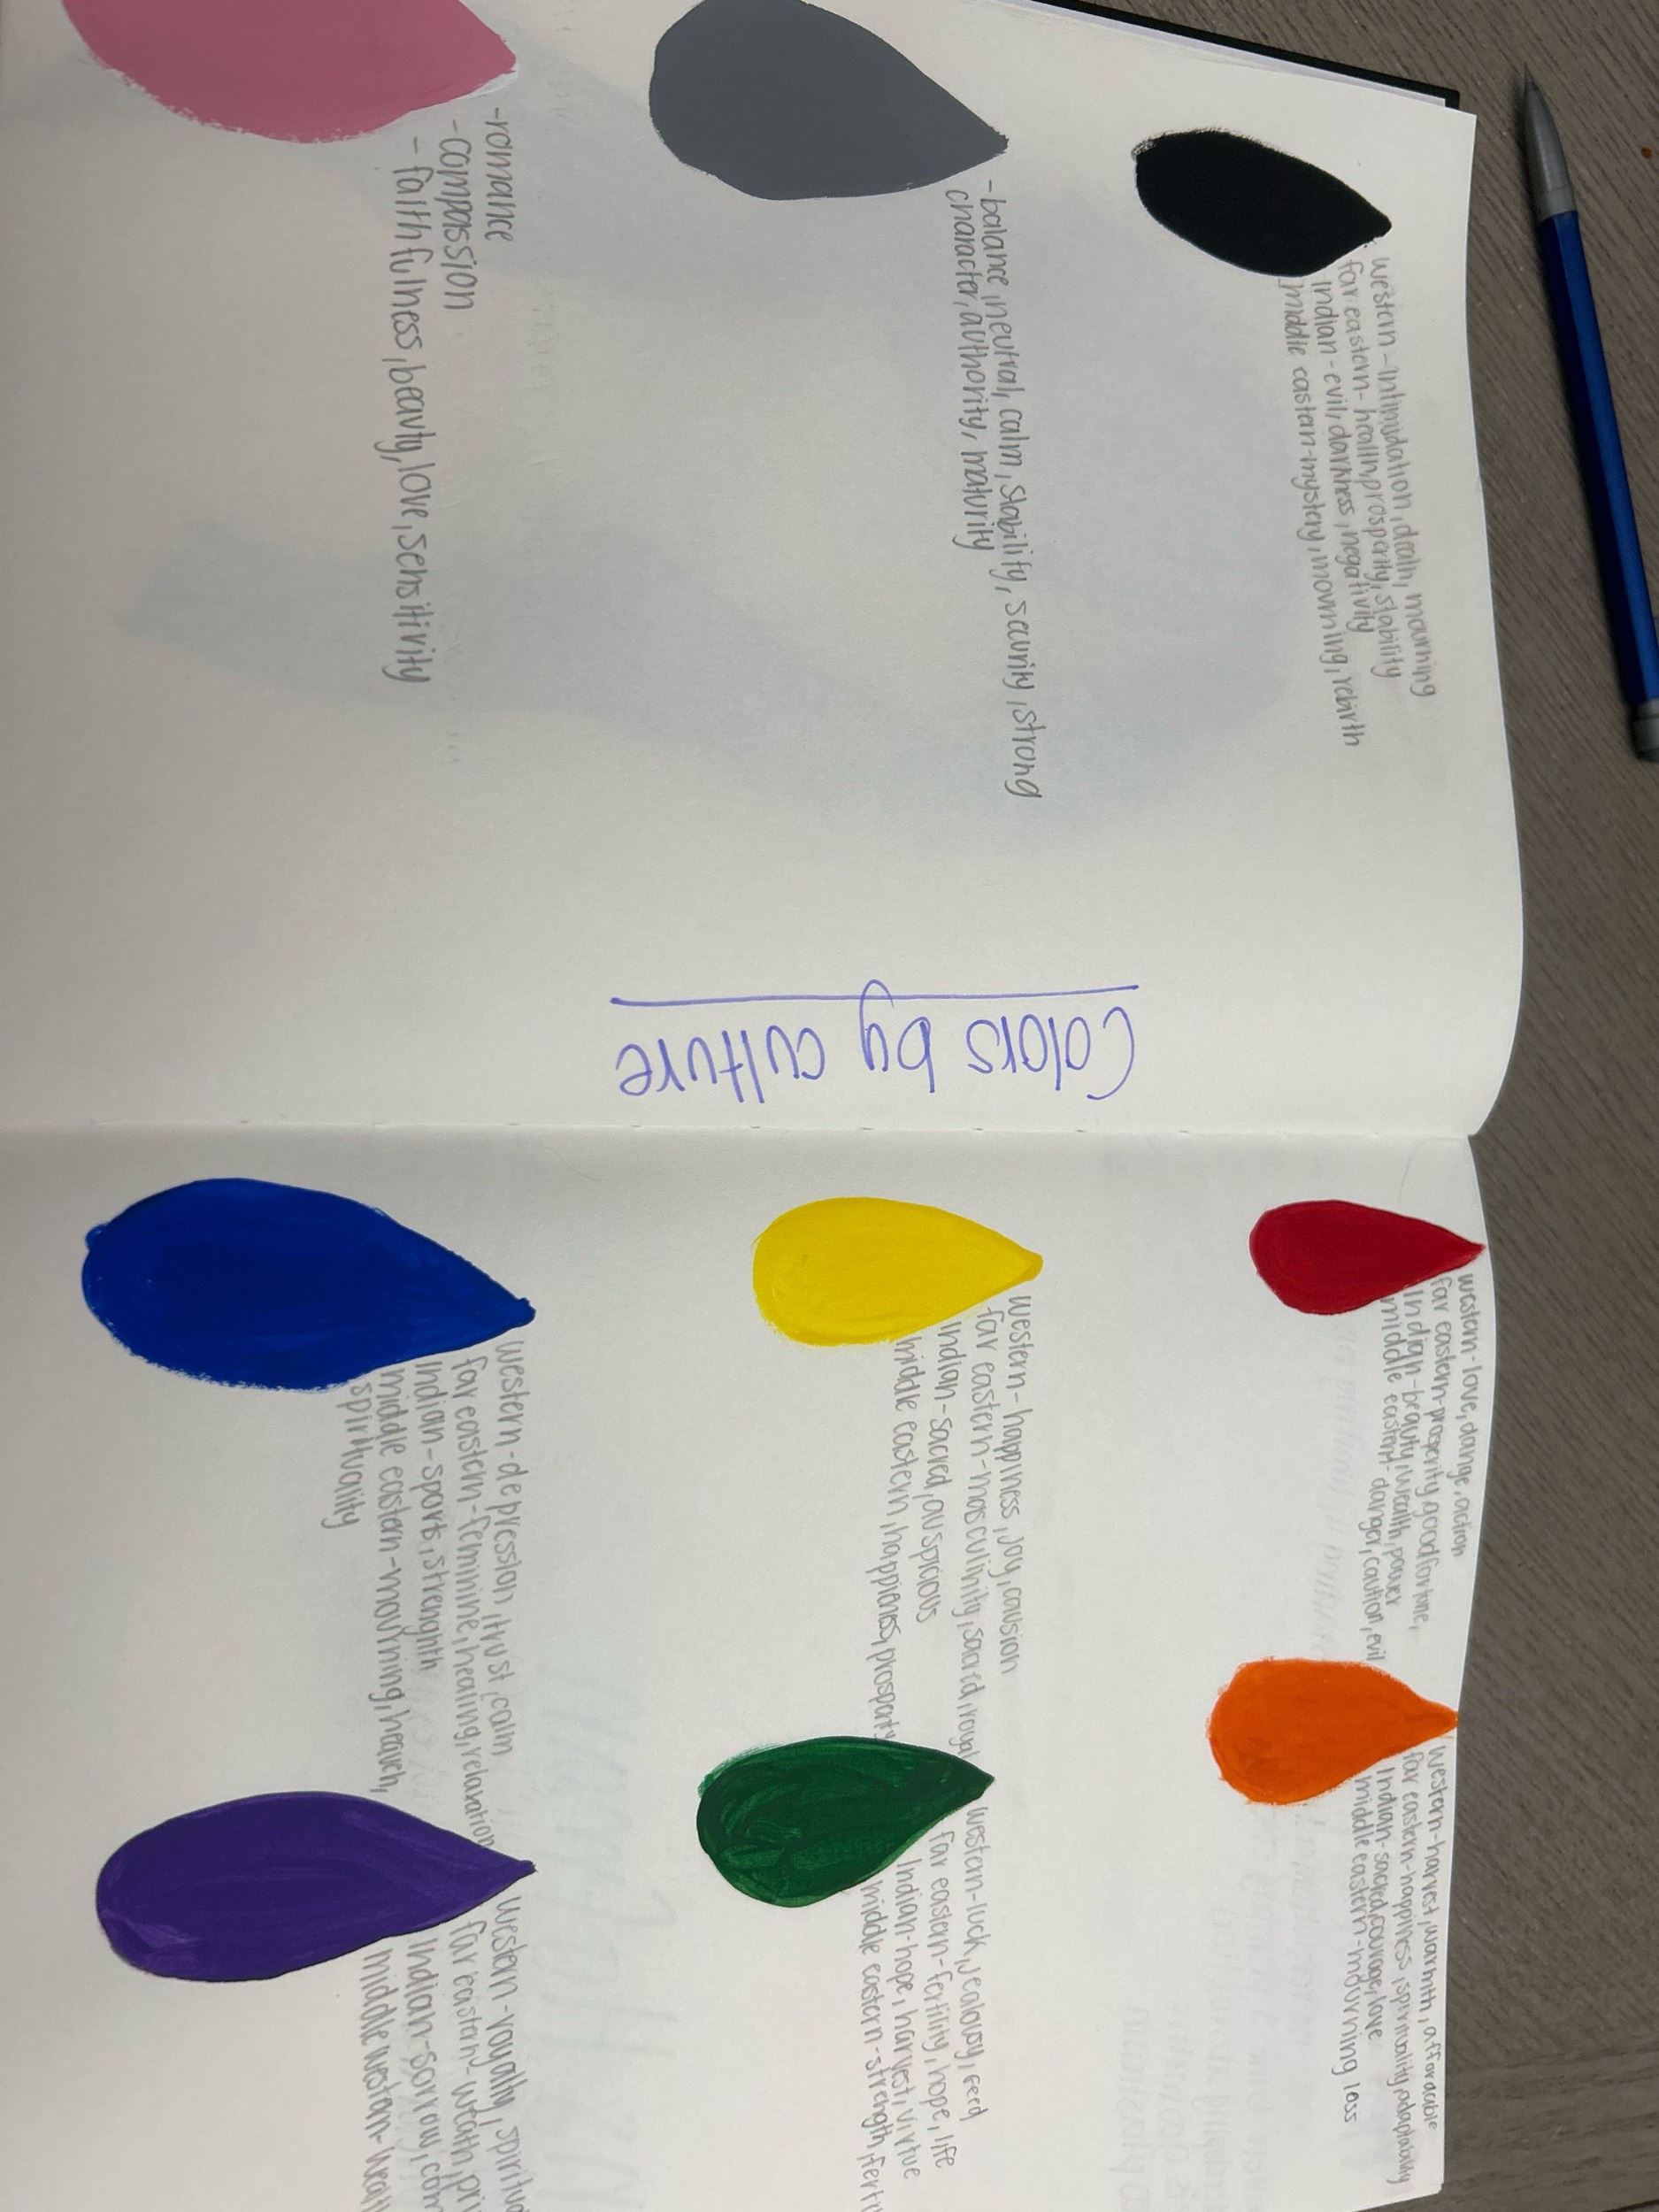 Colors by culture
western-intimidation, death, mourning
far eastern-health, prosparity, stability
Indian-evil, darkness, negativity
middle eastern-mystery, mourning, rebirth
-balance, neutral, calm, stability, security, strong
character, authority, maturity
-romance
-compassion
-faithfulness, beauty, love, sensitivity
western-love, dange, action
far eastern-prosperity, good fortune,
Indian-beauty, wealth, power
middle eastern-danger, caution, evil
western-harvest, warmth, affordable
far eastern-happiness, spirituality, adaptability
Indian-sacred, courage, love
middle eastern-mourning loss
western-happiness, joy, causion
far eastern-masculinity, sacred, royal
Indian-sacred, auspicious
middle eastern, happieness, prosparity
western-luck, jealousy, feed
far eastern-fertility, hope, life
Indian-hope, harvest, virtue
middle eastern-strength, ferti
western-depression, trust, calm
far eastern-feminine, healing, relaxation
Indian-sports, strenghth
middle eastern-mourning, heaven,
spirituality
western-royalty, spiritua
far eastern-wealth, pri
Indian-sorrow, com
middle westan-wealt